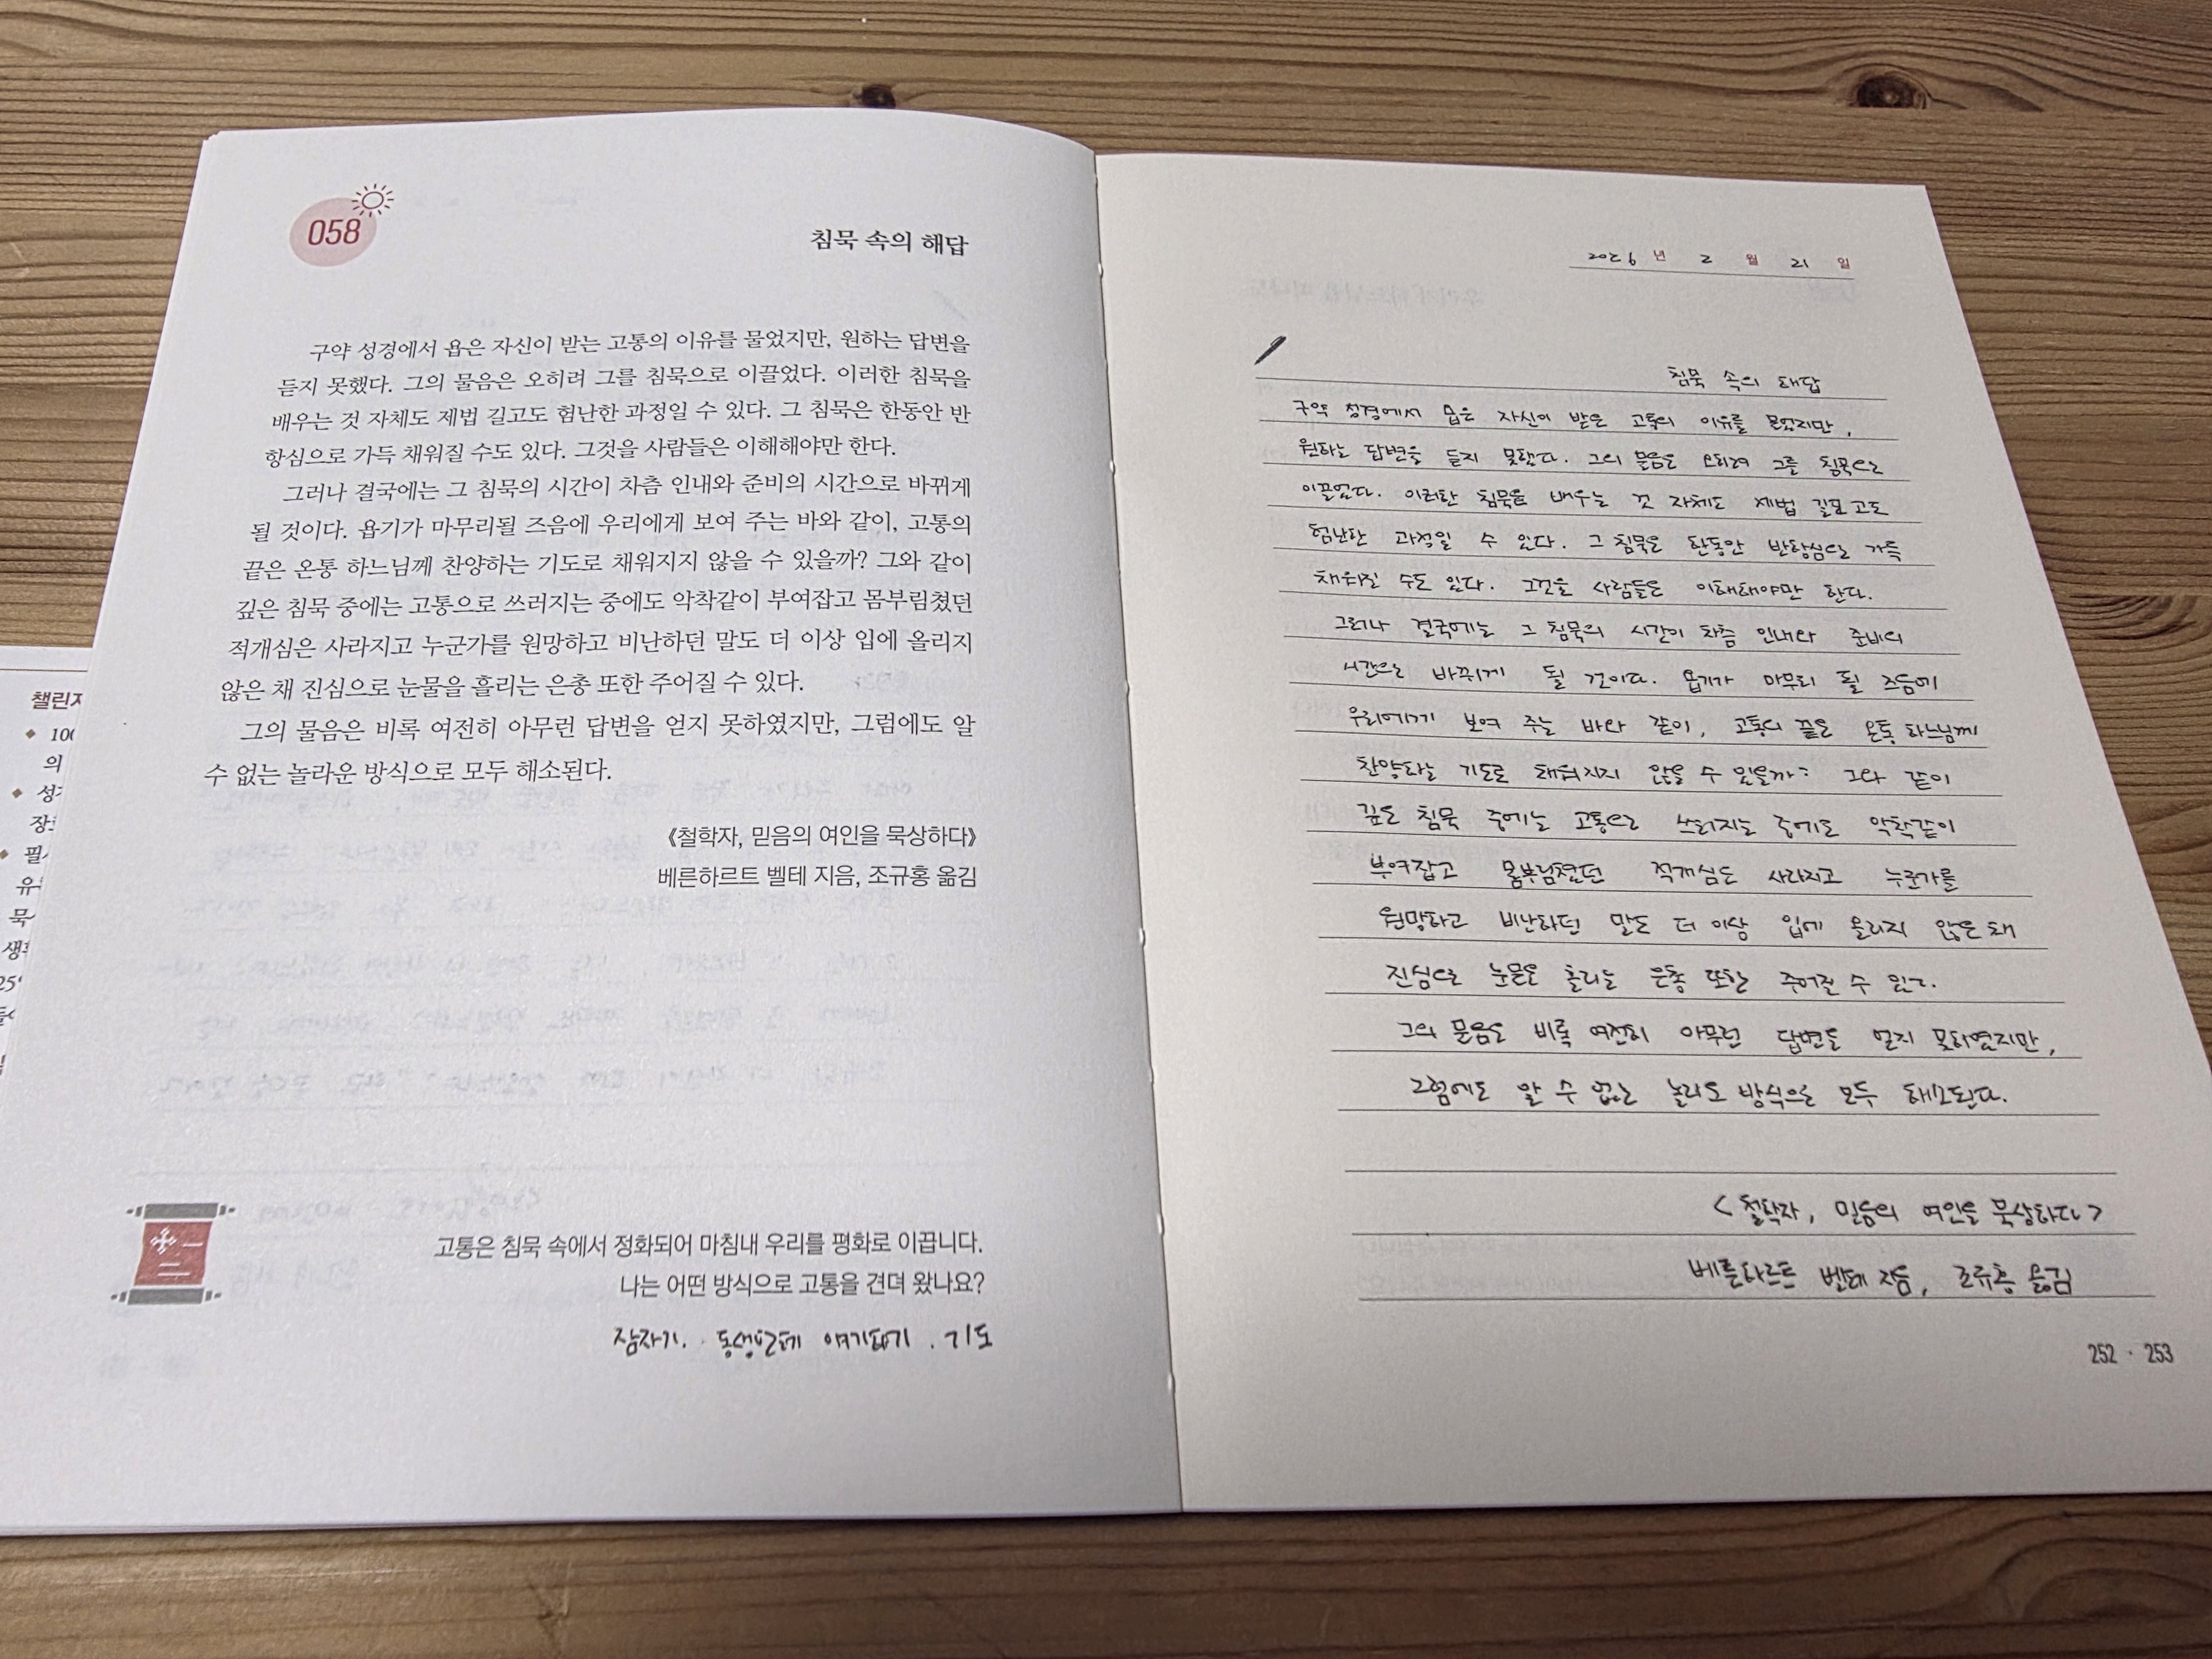 058
침묵 속의 해답
구약 성경에서 욥은 자신이 받는 고통의 이유를 물었지만, 원하는 답변을
듣지 못했다. 그의 물음은 오히려 그를 침묵으로 이끌었다. 이러한 침묵을
배우는 것 자체도 제법 길고도 험난한 과정일 수 있다. 그 침묵은 한동안 반
항심으로 가득 채워질 수도 있다. 그것을 사람들은 이해해야만 한다.
그러나 결국에는 그 침묵의 시간이 차츰 인내와 준비의 시간으로 바뀌게
될 것이다. 욥기가 마무리될 즈음에 우리에게 보여 주는 바와 같이, 고통의
끝은 온통 하느님께 찬양하는 기도로 채워지지 않을 수 있을까? 그와 같이
깊은 침묵 중에는 고통으로 쓰러지는 중에도 악착같이 부여잡고 몸부림쳤던
적개심은 사라지고 누군가를 원망하고 비난하던 말도 더 이상 입에 올리지
않은 채 진심으로 눈물을 흘리는 은총 또한 주어질 수 있다.
그의 물음은 비록 여전히 아무런 답변을 얻지 못하였지만, 그럼에도 알
수 없는 놀라운 방식으로 모두 해소된다.
《철학자, 믿음의 여인을 묵상하다》
베른하르트 벨테 지음, 조규홍 옮김
고통은 침묵 속에서 정화되어 마침내 우리를 평화로 이끕니다.
나는 어떤 방식으로 고통을 견뎌 왔나요?
잠자기. 동생한테 얘기하기. 기도
챌린지
100
의
장
2026 년 2 월 21 일
침묵 속의 해답
구약 성경에서 욥은 자신이 받은 고통의 이유를 물었지만,
원하는 답변을 듣지 못했다. 그의 물음은 오히려 그를 침묵으로
이끌었다. 이러한 침묵을 배우는 것 자체도 제법 길고도
험난한 과정일 수 있다. 그 침묵은 한동안 반항심으로 가득
채워질 수도 있다. 그것을 사람들은 이해해야만 한다.
그러나 결국에는 그 침묵의 시간이 차츰 인내와 준비의
시간으로 바뀌게 될 것이다. 욥기가 마무리 될 즈음에
우리에게 보여 주는 바와 같이, 고통의 끝은 온통 하느님께
찬양하는 기도로 채워지지 않을 수 있을까? 그와 같이
깊은 침묵 중에는 고통으로 쓰러지는 중에도 악착같이
부여잡고 몸부림쳤던 적개심도 사라지고 누군가를
원망하고 비난하던 말도 더 이상 입에 올리지 않은 채
진심으로 눈물을 흘리는 은총 또한 주어질 수 있다.
그의 물음은 비록 여전히 아무런 답변을 얻지 못하였지만,
그럼에도 알 수 없는 놀라운 방식으로 모두 해소된다.
<철학자, 믿음의 여인을 묵상하다>
베른하르트 벨테 지음, 조규홍 옮김
252 · 253